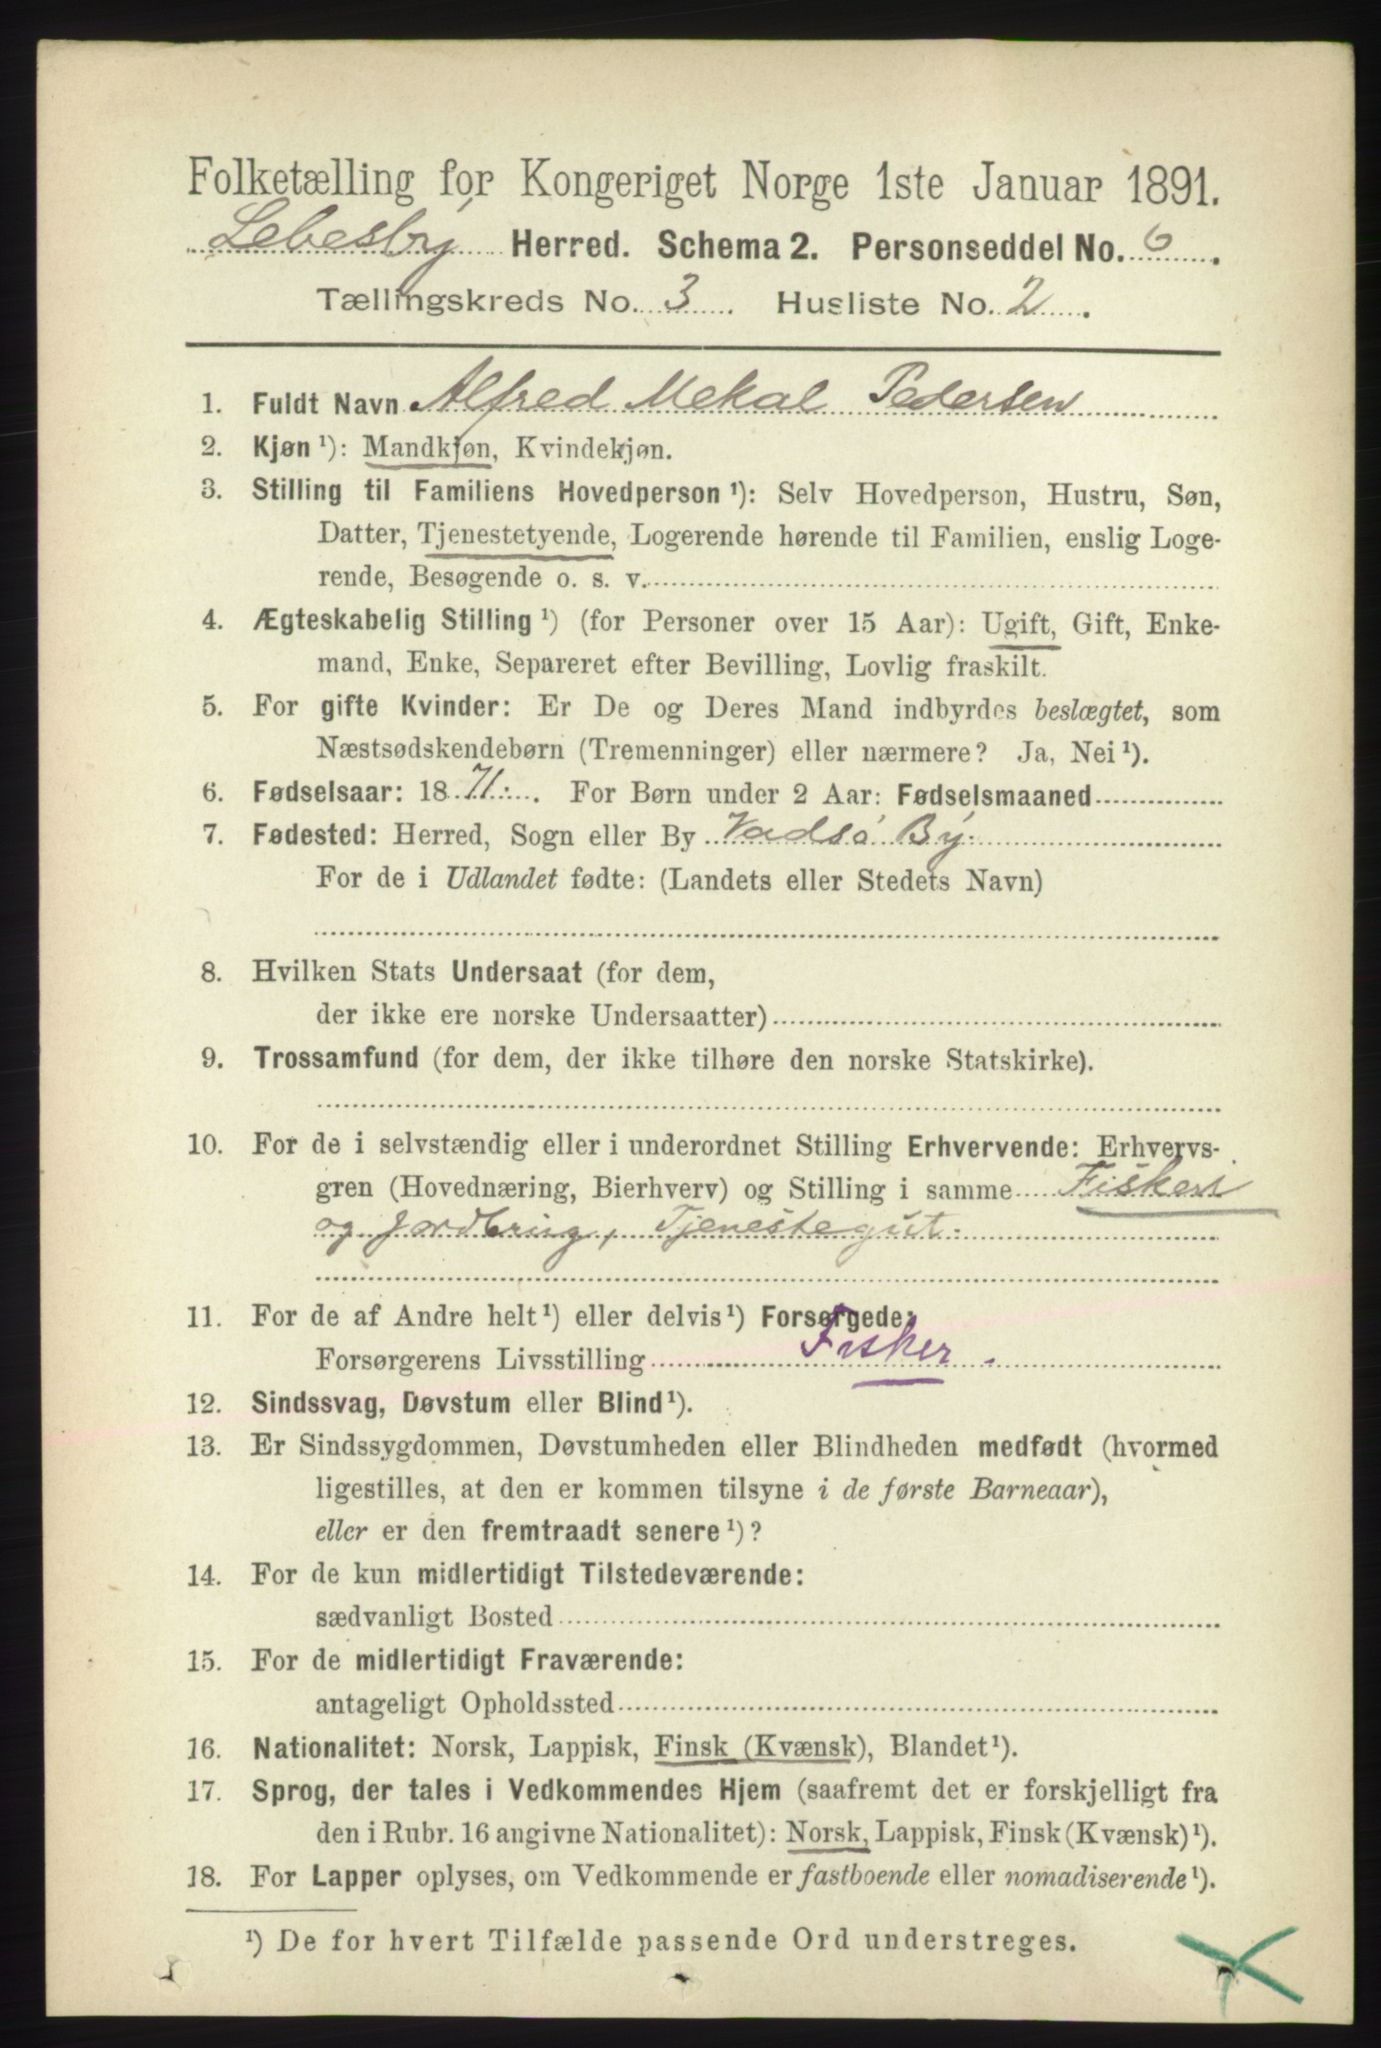 Folketælling for Kongeriget Norge 1ste Januar 1891.
Lebesby Herred. Schema 2. Personseddel No. 6.
Tællingskreds No. 3. Husliste No. 2.
1. Fuldt Navn Alfred Mekal Pedersen
2. Kjøn ¹): Mandkjøn, Kvindekjøn.
3. Stilling til Familiens Hovedperson ¹): Selv Hovedperson, Hustru, Søn,
Datter, Tjenestetyende, Logerende hørende til Familien, enslig Loge-
rende, Besøgende o. s. v.
4. Ægteskabelig Stilling ¹) (for Personer over 15 Aar): Ugift, Gift, Enke-
mand, Enke, Separeret efter Bevilling, Lovlig fraskilt.
5. For gifte Kvinder: Er De og Deres Mand indbyrdes beslægtet, som
Næstsødskendebørn (Tremenninger) eller nærmere? Ja, Nei ¹).
6. Fødselsaar: 1871. For Børn under 2 Aar: Fødselsmaaned
7. Fødested: Herred, Sogn eller By Vadsö By.
For de i Udlandet fødte: (Landets eller Stedets Navn)
8. Hvilken Stats Undersaat (for dem,
der ikke ere norske Undersaatter)
9. Trossamfund (for dem, der ikke tilhøre den norske Statskirke).
10. For de i selvstændig eller i underordnet Stilling Erhvervende: Erhvervs-
gren (Hovednæring, Bierhverv) og Stilling i samme Fiskeri
og Jordbrug, Tjenestegut.
11. For de af Andre helt ¹) eller delvis ¹) Forsørgede:
Forsørgerens Livsstilling Fisker.
12. Sindssvag, Døvstum eller Blind ¹).
13. Er Sindssygdommen, Døvstumheden eller Blindheden medfødt (hvormed
ligestilles, at den er kommen tilsyne i de første Barneaar),
eller er den fremtraadt senere ¹)?
14. For de kun midlertidigt Tilstedeværende:
sædvanligt Bosted
15. For de midlertidigt Fraværende:
antageligt Opholdssted
16. Nationalitet: Norsk, Lappisk, Finsk (Kvænsk), Blandet ¹).
17. Sprog, der tales i Vedkommendes Hjem (saafremt det er forskjelligt fra
den i Rubr. 16 angivne Nationalitet): Norsk, Lappisk, Finsk (Kvænsk) ¹).
18. For Lapper oplyses, om Vedkommende er fastboende eller nomadiserende ¹).
¹) De for hvert Tilfælde passende Ord understreges.